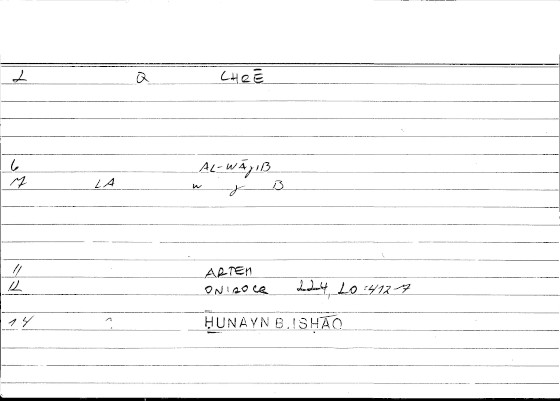 2 Q CHRĒ
6 AL-WĀJIB
7 LA W J B
11 ARTEM
12 ONIROCR 224, 20 = 412-7
14 ? ḤUNAYN B. ISḤĀQ